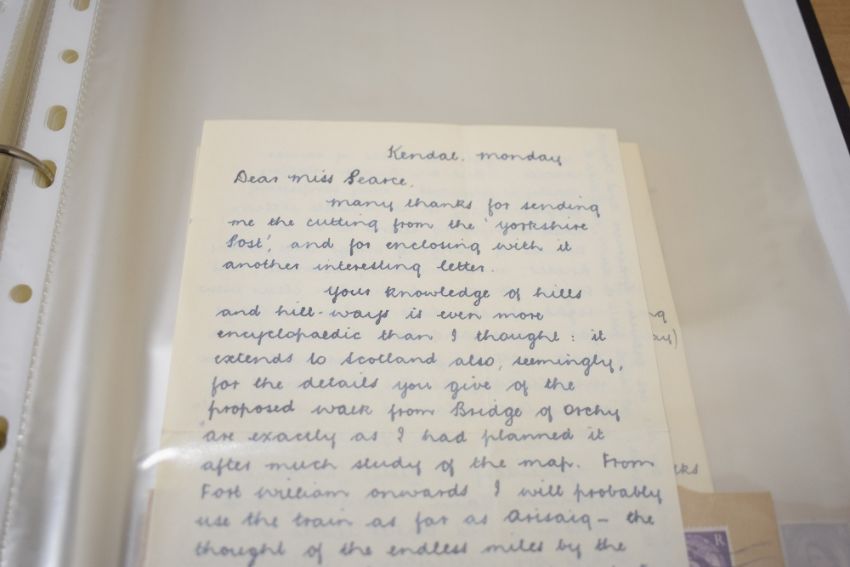 Kendal. Monday
Dear Miss Pearce,
Many thanks for sending
me the cutting from the 'Yorkshire
Post', and for enclosing with it
another interesting letter.
Your knowledge of hills
and hill-ways is even more
encyclopaedic than I thought: it
extends to Scotland also, seemingly,
for the details you give of the
proposed walk from Bridge of Orchy
are exactly as I had planned it
after much study of the map. From
Fort William onwards I will probably
use the train as far as Arisaig – the
thought of the endless miles by the